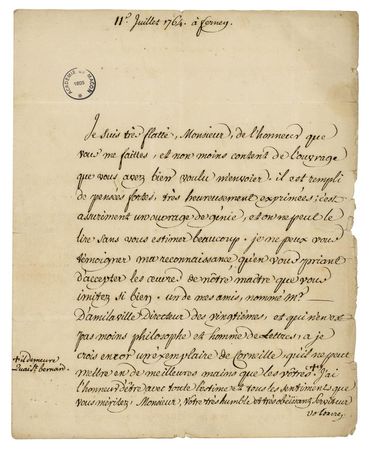 11e. Juillet 1764. à ferney.
ACADEMIE DE MACON
1805
Je suis très flatté, Monsieur, de l'honneur que
vous me faittes, et non moins content de l'ouvrage
que vous avez bien voulu m'envoier. il est rempli
de pensées fortes, très heureusement exprimées; c'est
assurément un ouvrage de génie, et on ne peut le
lire sans vous estimer beaucoup. je ne peux vous
témoigner ma reconnaissance qu'en vous priant
d'accepter les œuvres de nôtre maître que vous
imitez si bien. un de mes amis, nommé Mr.
Damilaville Directeur des vingtièmes, et qui n'en est
pas moins philosophe et homme de Lettres, a je
crois encor un exemplaire de Corneille, qu'il ne peut
mettre en de meilleures mains que les vôtres + J'ai
l'honneur d'être avec toute l'estime et tous les sentiments que
vous méritez, Monsieur, Vôtre très humble et très obéissant serviteur
Voltaire
+ il demeure
Quai st bernard.